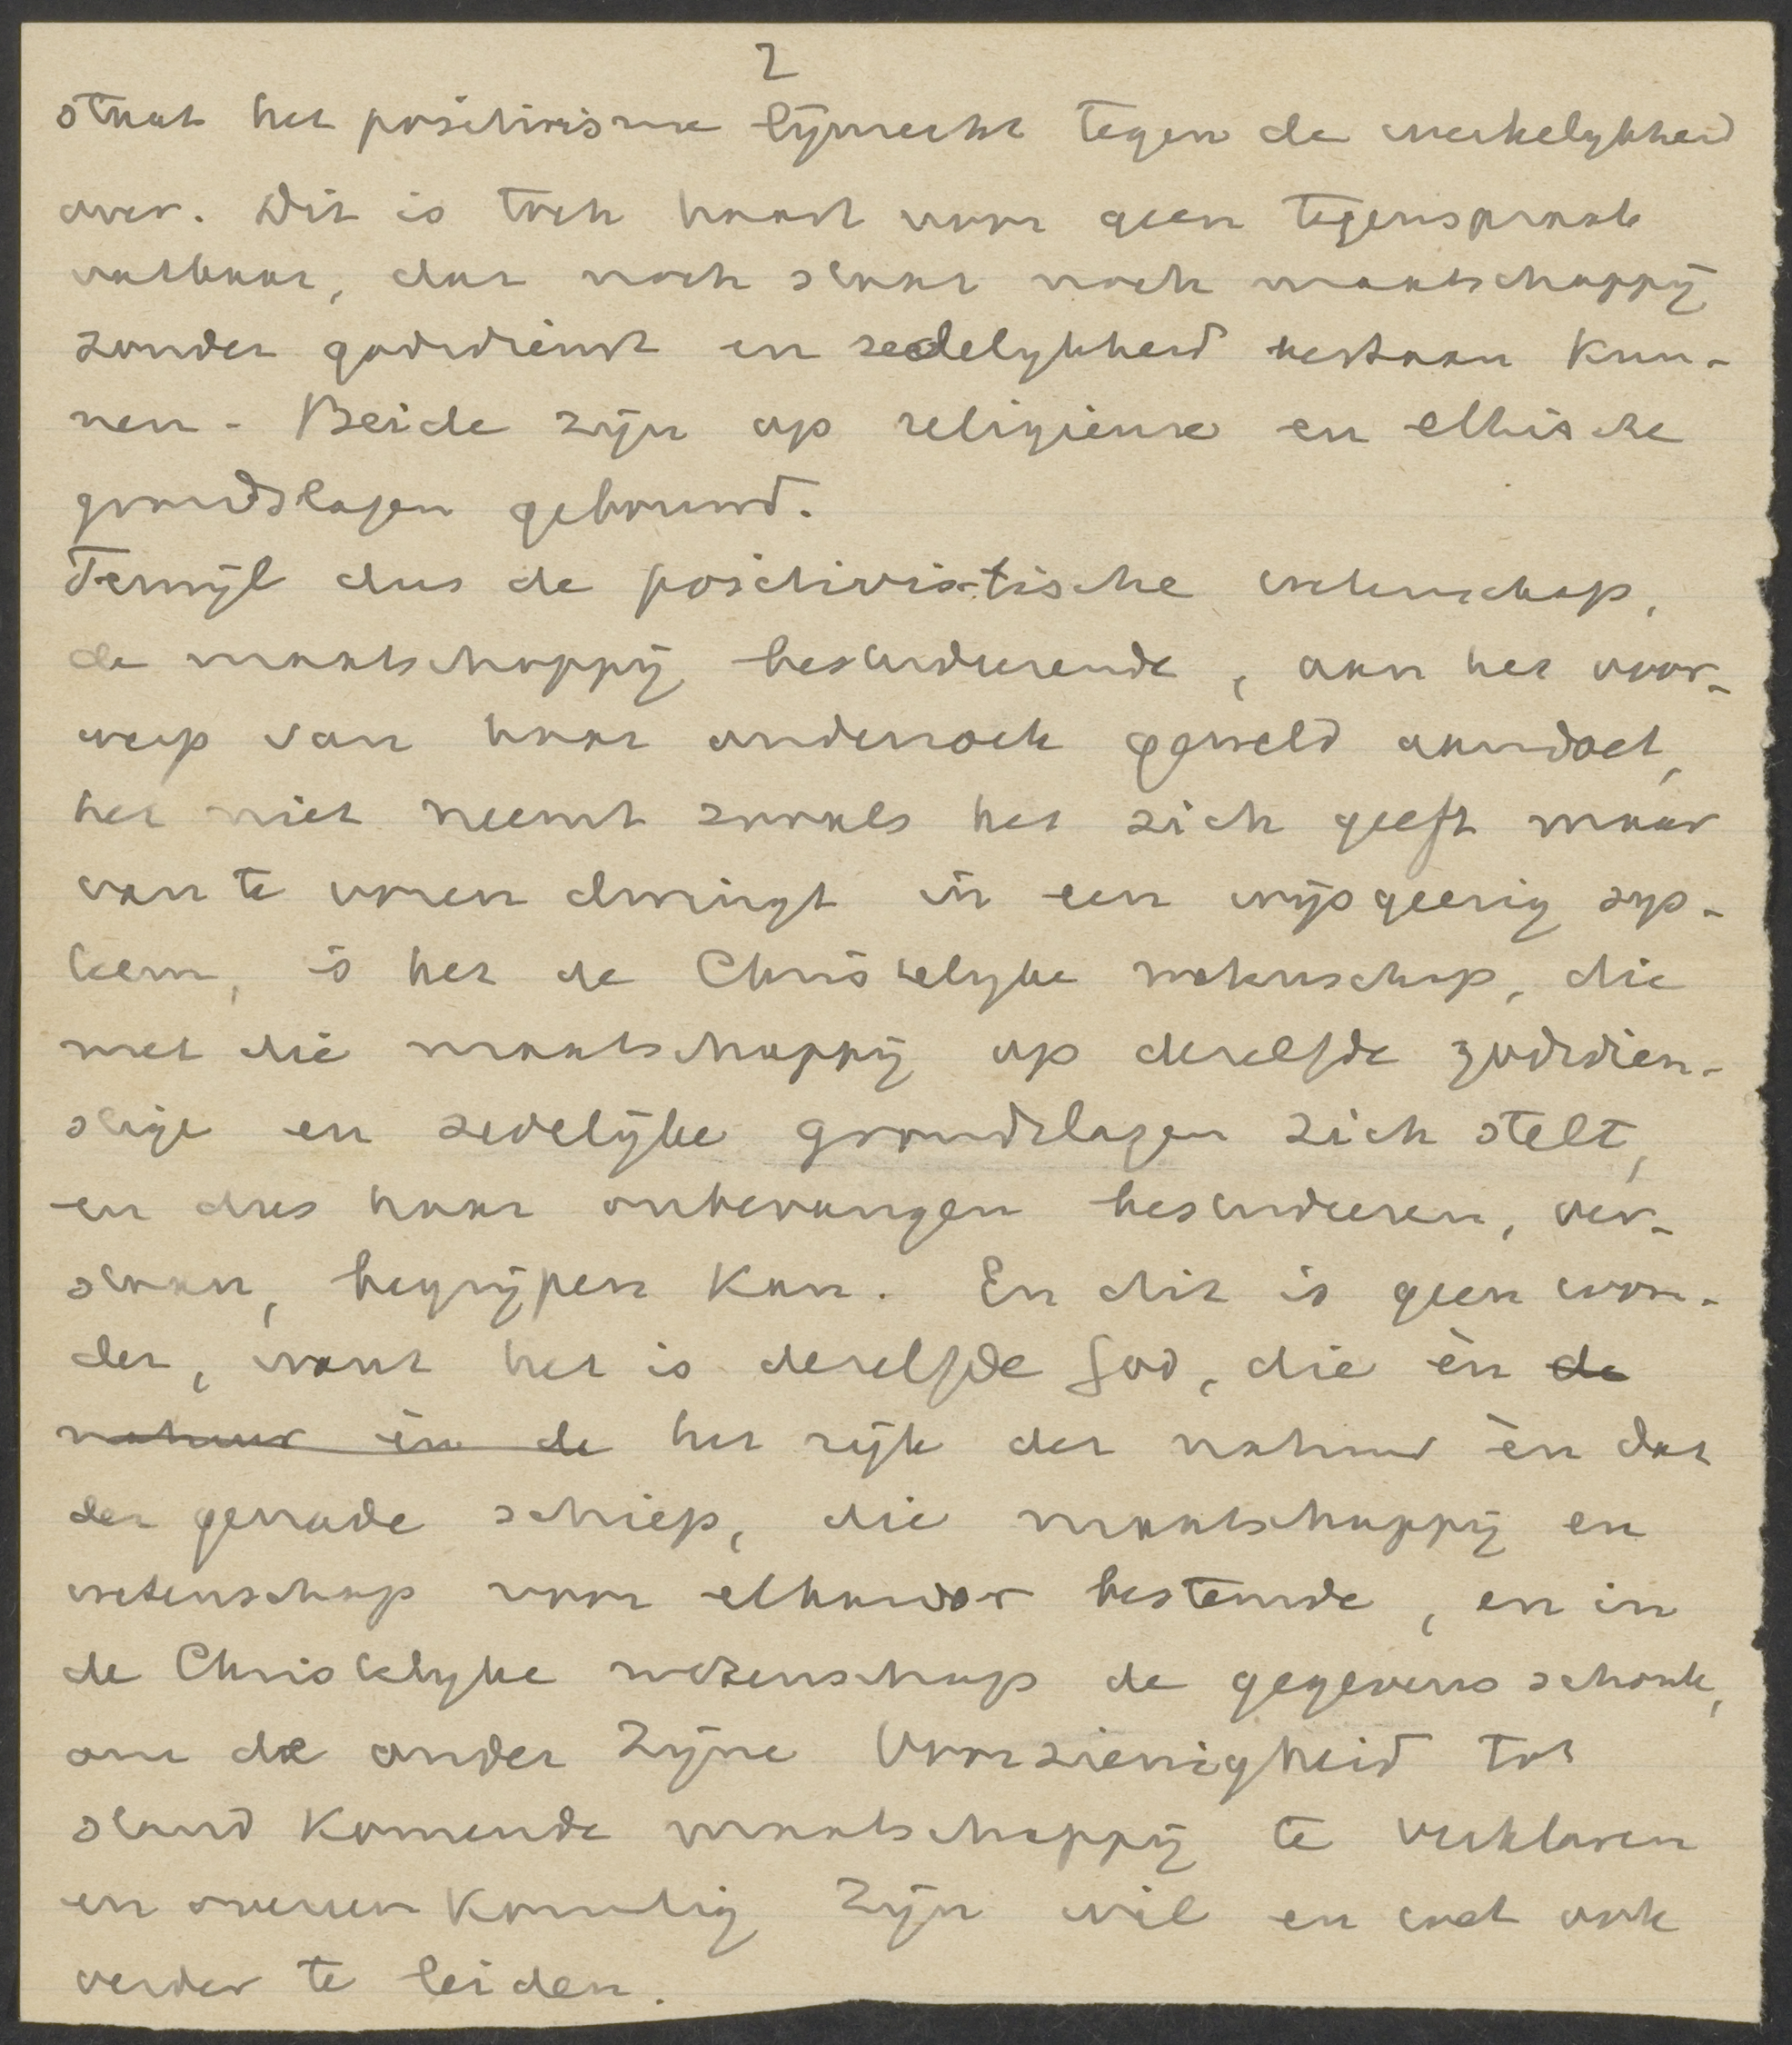 2
staat het positivisme lijnrecht tegen de werkelykheid
over. Dit is toch haast voor geen tegenspraak
vatbaar, dat noch staat noch maatschappij
zonder godsdienst en zedelykheid bestaan kun-
nen. Beide zijn op religieuse en ethische
grondslagen gebouwd.
Terwijl dus de positivistische wetenschap,
de maatschappij bestudeerende, aan het voor-
werp van haar onderzoek geweld aandoet,
het niet neemt zooals het zich geeft maar
van te voren dwingt in een wijsgeerig sys-
teem, is het de Christelyke wetenschap, die
met die maatschappij op dezelfde godsdien-
stige en zedelijke grondslagen zich stelt,
en dus haar onbevangen bestudeeren, ver-
staan, begrijpen kan. En dit is geen won-
der, want het is dezelfde God, die èn de
natuur èn de het rijk der natuur èn dat
der genade schiep, die maatschappij en
wetenschap voor elkander bestemde, en in
de Christelyke wetenschap de gegevens schonk,
om de onder Zijne Voorzienigheid tot
stand komende maatschappij te verklaren
en overeenkomstig Zijn wil en wet ook
verder te leiden.